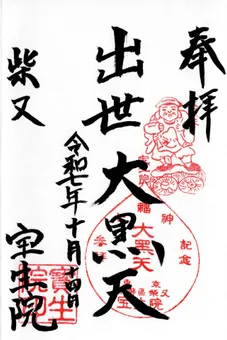 奉拝
出世大黒天
令和七年十月十四日
柴又
宝生院
福神
大黒天
記念
参拝
寳生
院印